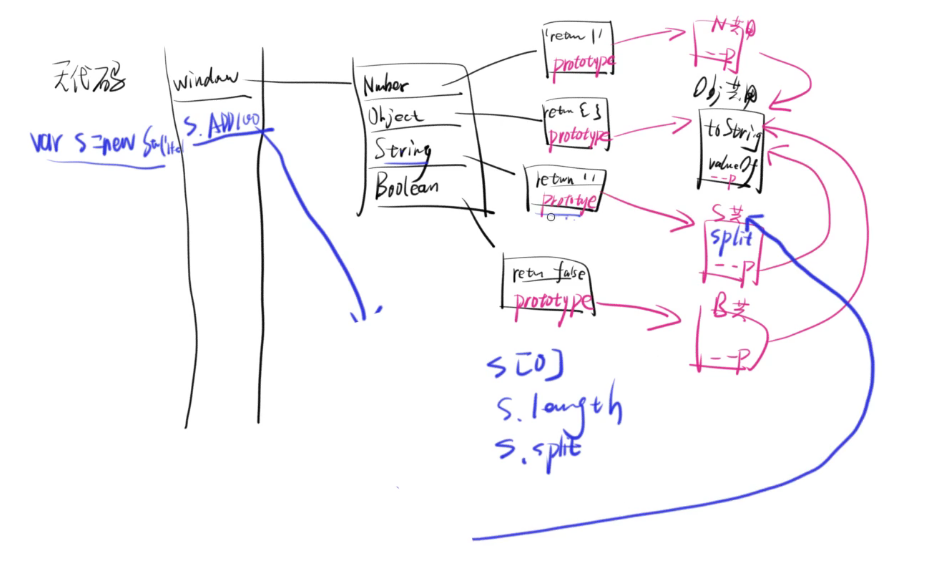 无代码
var s=new
window
S. ADD100
Number
Object
String
Boolean
'return 1'
prototype
return { }
prototype
return ''
prototye
retun false
prototype
N共用
--P
Obj共用
toString
valueOf
--P
S共
split
--P
B共
--P
S[0]
S.length
S.split